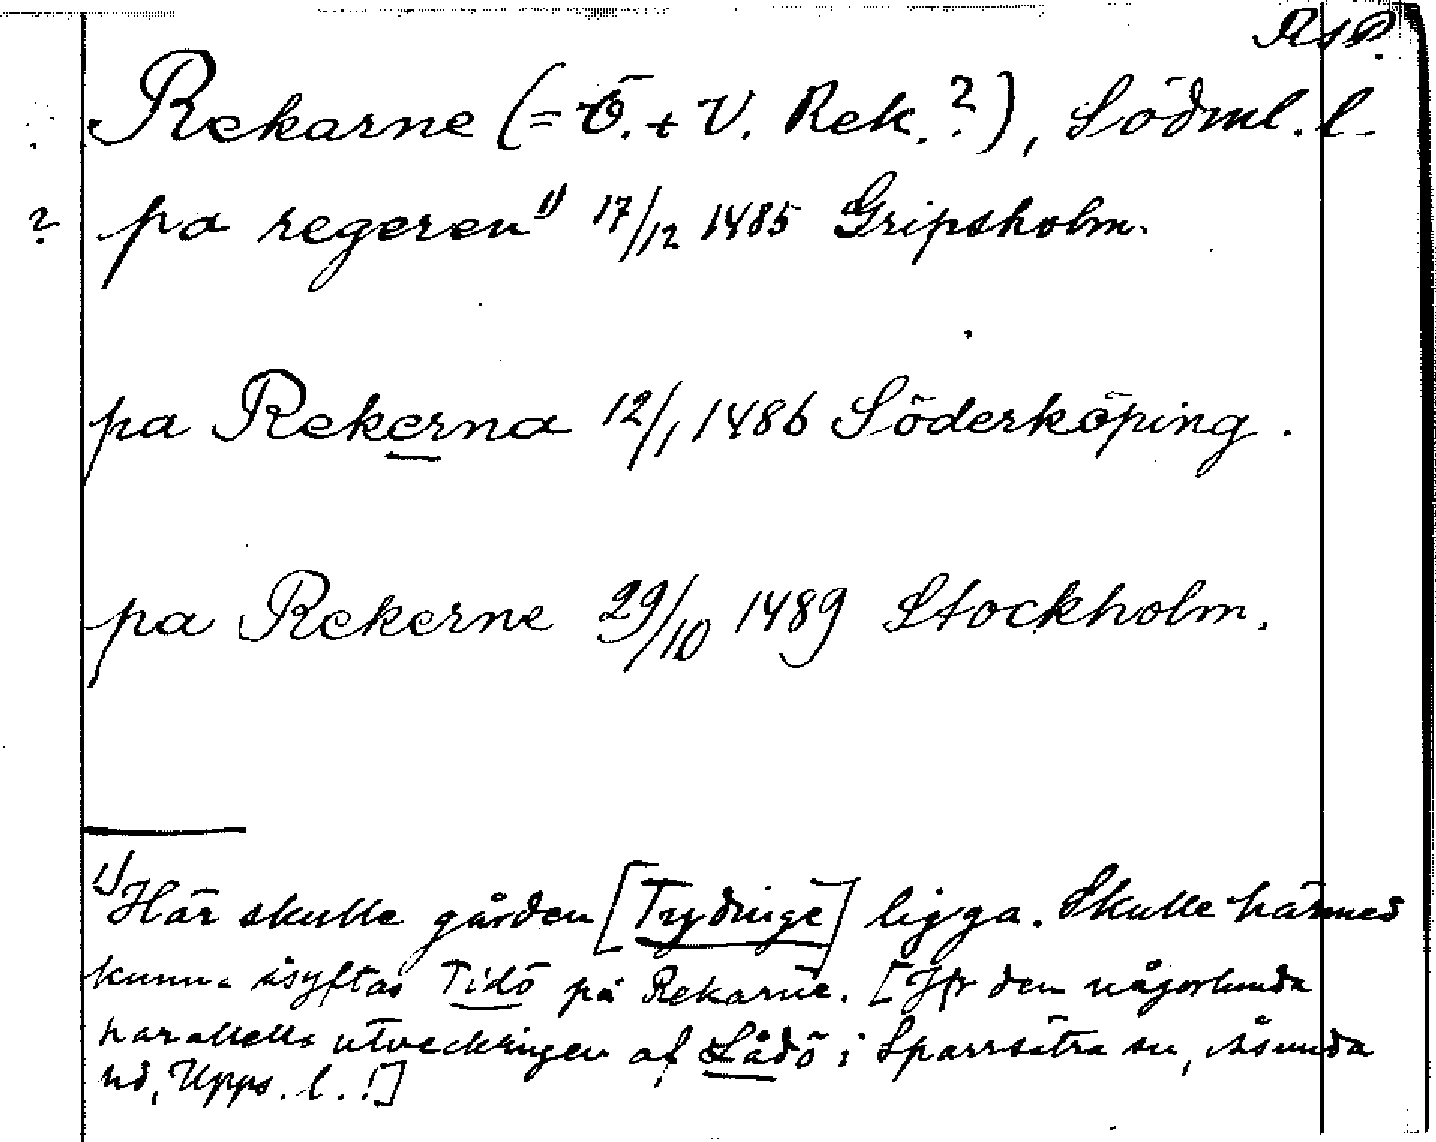 RSD.
Rekarne (= Ö. + V. Rek.?), Södml. l.
? pa regeren 1) 17/12 1485 Gripsholm.
pa Rekerna 12/1 1486 Söderköping.
pa Rekerne 29/10 1489 Stockholm.
1) Här skulle gården [Trydinge] ligga. Skulle härmed
kunna åsyftas Tidö på Rekarne. [Jfr den någorlunda
parallella utvecklingen af Lådö i Sparrsätra sn, Åsunda
hd, Upps. l.!]